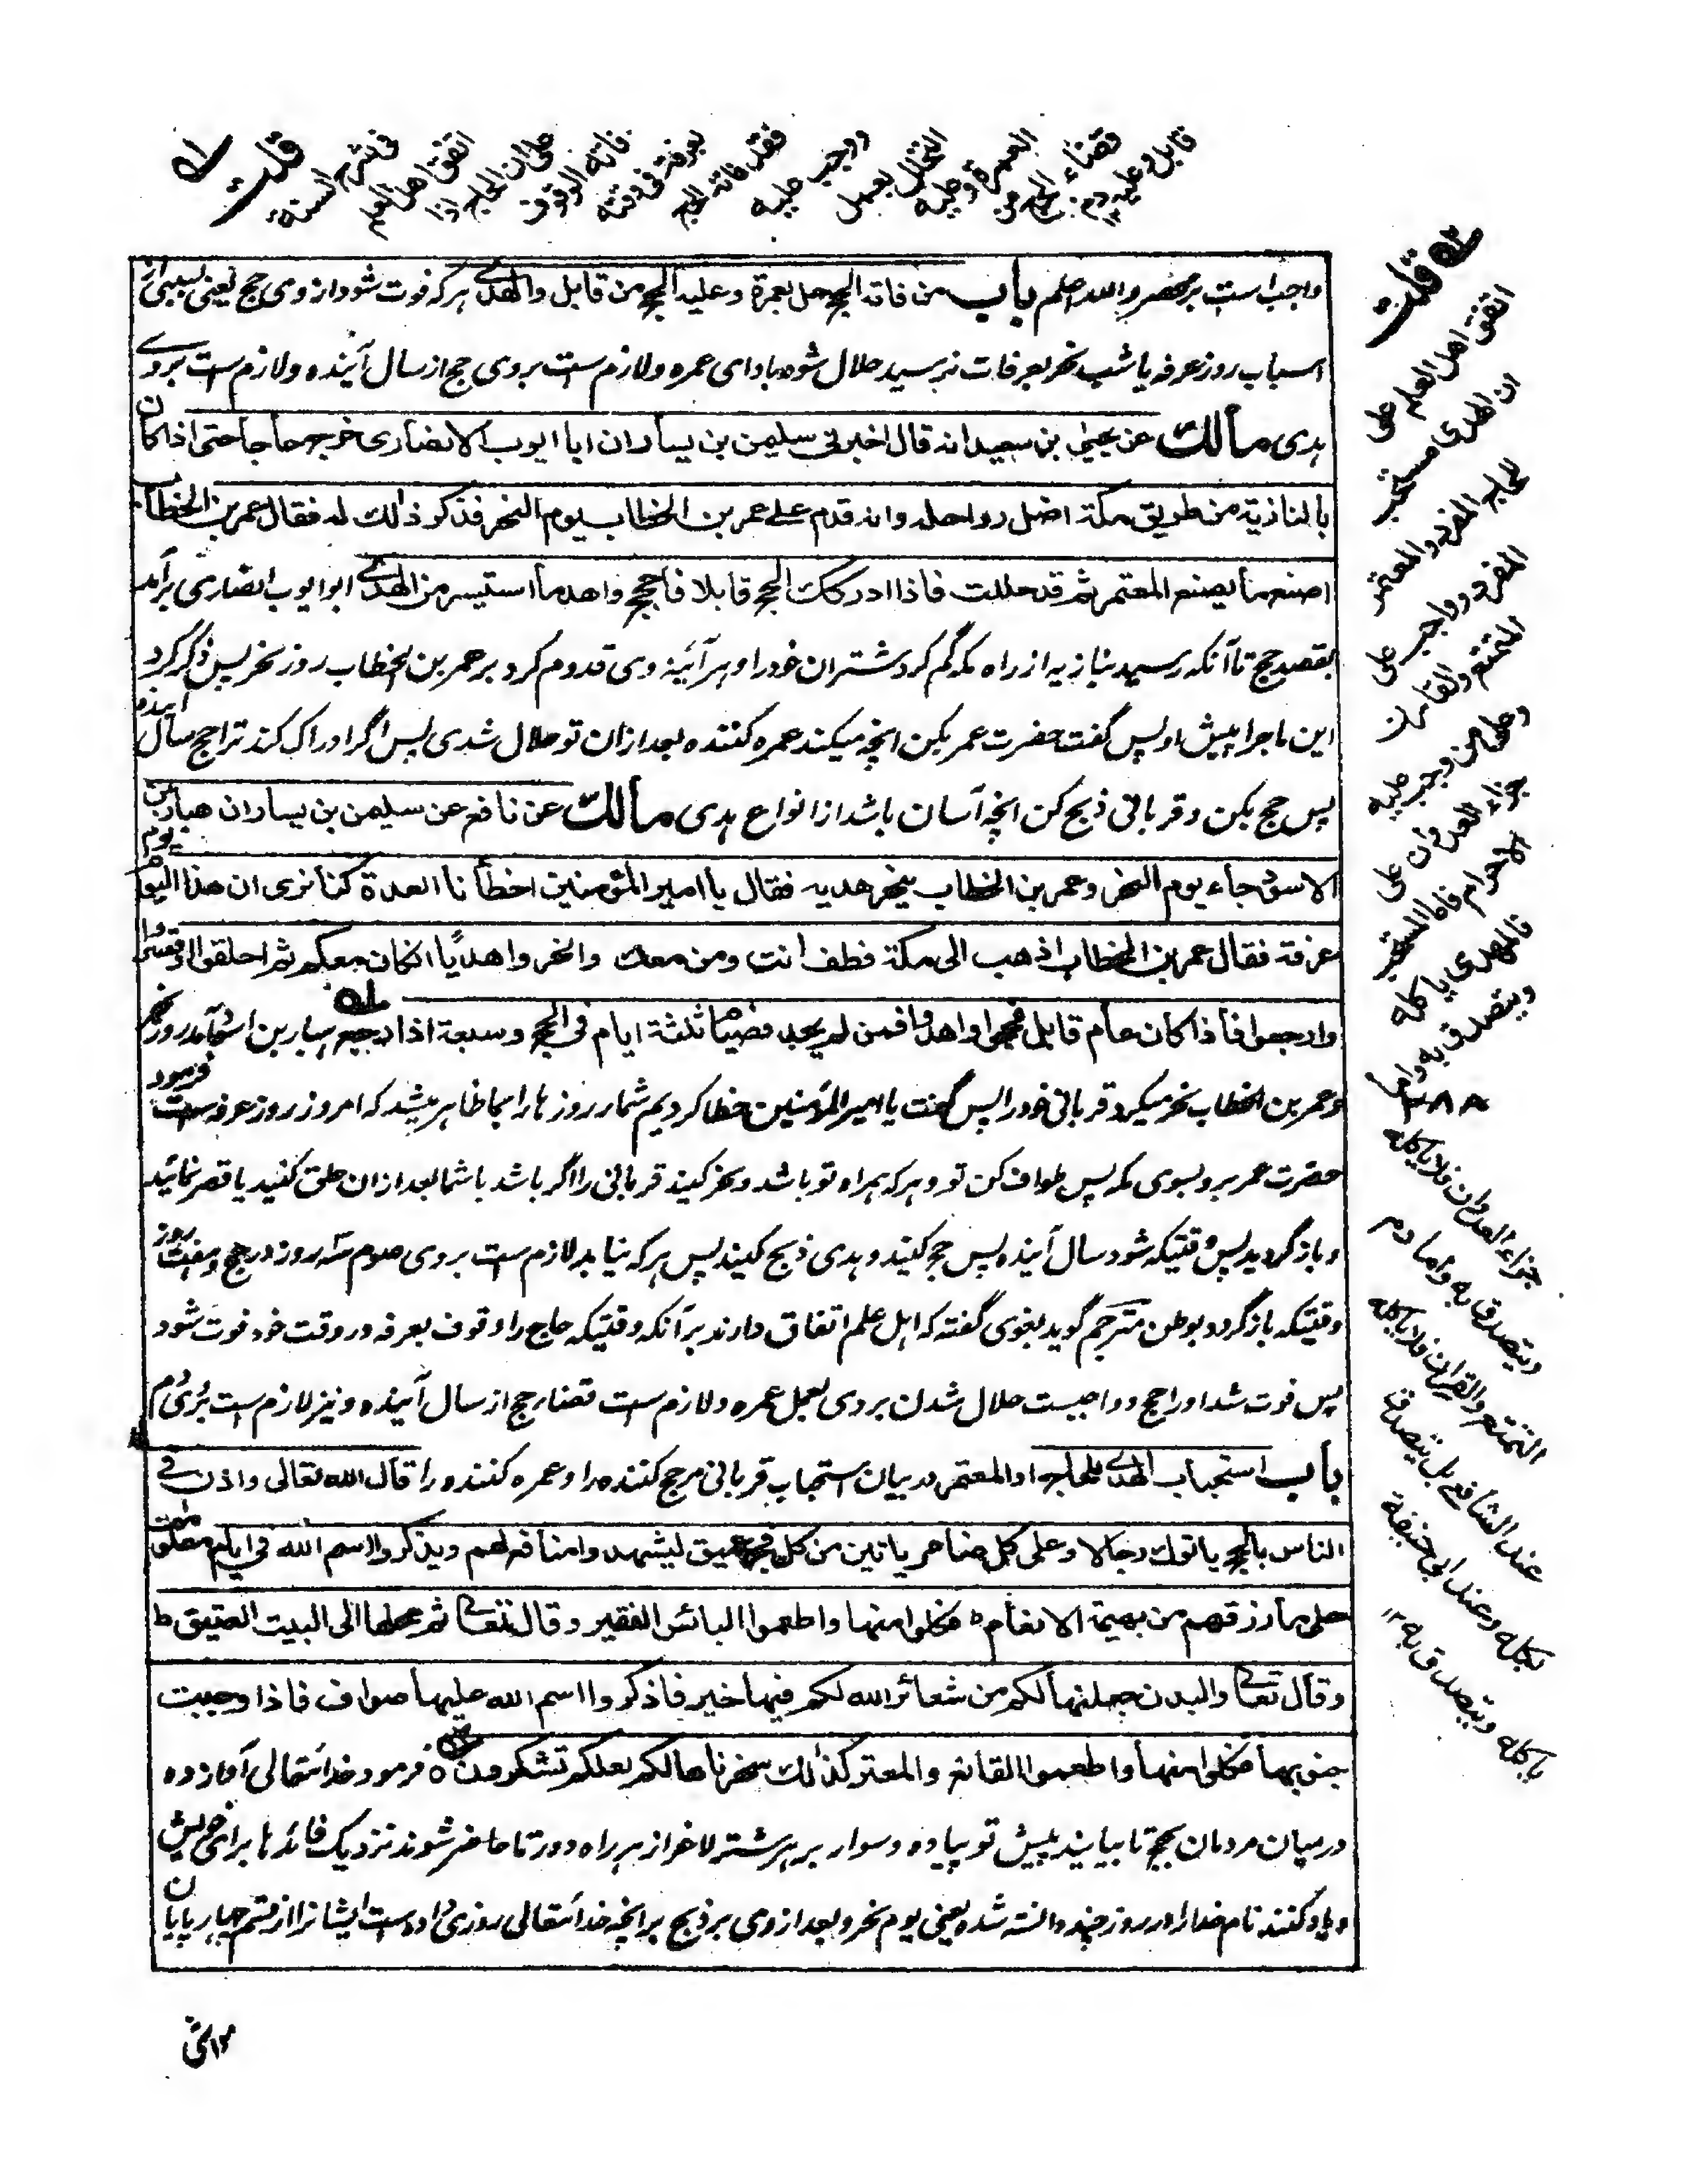 ۵۱ قلت
فی شرح السنة
اتفق اهل العلم
علی ان الحاج اذا
فاته الوقوف
بعرفة فی وقته
فقد فاته الحج
ووجب علیه
التحلل بعمل
العمرة وعلیه
قضاء الحج من
قابل وعلیه دم ۱۲
واجب است بر محصر والله اعلم باب من فاته الحج حل بعمرة وعلیه الحج من قابل والهدی هر که فوت شود از وی حج یعنی بسببی از
اسباب روز عرفه یا شب نحر بعرفات نرسید حلال شود بادای عمره ولازم ست بروی حج از سال آینده ولازم ست بروے
هدی مالك عن یحیی بن سعید انه قال اخبرنی سلیمن بن یسار ان ابا ایوب الانصاری خرج حاجا حتی اذا کان
بالنازیة من طریق مکة اضل رواحله وانه قدم علے عمر بن الخطاب یوم النحر فذکر ذلك له فقال عمر بن الخطاب
اصنع ما یصنع المعتمر ثم قد حللت فاذا ادرکك الحج قابلا فاحجج واهد ما استیسر من الهدی ابو ایوب انصاری برآمد
بقصد حج تا آنکه رسید بنازیه از راه مکه گم کرد شتران خود را وهر آئینه وی قدوم کرد بر عمر بن الخطاب روز نحر پس ذکر کرد
این ماجرا پیش او پس گفت حضرت عمر بکن انچه میکند عمره کننده بعد ازان تو حلال شدی پس اگر ادراک کند ترا حج سال آینده
پس حج بکن وقربانی ذبح کن انچه آسان باشد از انواع هدی مالك عن نافع عن سلیمن بن یسار ان هبار بن
الاسود جاء یوم النحر وعمر بن الخطاب ینحر هدیه فقال یا امیر المؤمنین اخطأنا العدة کنا نری ان هذا الیوم یوم
عرفة فقال عمر بن الخطاب اذهب الی مکة فطف انت ومن معك وانحروا هدیًا ان کان معکم ثم احلقوا او قصروا
وارجعوا فاذا کان عام قابل فحجوا واهدوا فمن لم یجد فصیام ثلثة ایام فی الحج وسبعة اذا رجع ۵۱ هبار بن اسود آمد روز نحر
وعمر بن الخطاب نحر میکرد قربانی خود را پس گفت یا امیر المؤمنین خطا کردیم شمار روز ها را بما ظاهر میشد که امروز روز عرفه ست فرمود
حضرت عمر برو بسوی مکه پس طواف کن تو وهر که همراه تو باشد ونحر کنید قربانی را اگر باشد با شما بعد ازان حلق کنید یا قصر نمائید
وباز گردید پس وقتیکه شود سال آینده پس حج کنید وهدی ذبح کنید پس هر که نیابد لازم ست بروی صوم سه روز در حج وهفت روز
وقتیکه باز گردد بوطن مترجم گوید بغوی گفته که اهل علم اتفاق دارند بر آنکه وقتیکه حاج را وقوف بعرفه در وقت خود فوت شود
پس فوت شد او را حج وواجبست حلال شدن بروی بعمل عمره ولازم ست قضاء حج از سال آینده ونیز لازم ست بروی دم
باب استحباب الهدی للحاج او المعتمر در بیان استحباب قربانی مر حج کننده را وعمره کننده را قال الله تعالی واذن فی
الناس بالحج یاتوك رجالا وعلی کل ضامر یاتین من کل فج عمیق لیشهدوا منافع لهم ویذکروا اسم الله فی ایام معلومت
علی ما رزقهم من بهیمة الانعام فکلوا منها واطعموا البائس الفقیر وقال تعالی ثم محلها الی البیت العتیق ط
وقال تعالی والبدن جعلنها لکم من شعائر الله لکم فیها خیر فاذکروا اسم الله علیها صواف فاذا وجبت
جنوبها فکلوا منها واطعموا القانع والمعتر کذلك سخرناها لکم لعلکم تشکرون ۵۲ فرمود خدا تعالی آواز ده
درمیان مردمان بحج تا بیایند پیش تو پیاده وسوار بر هر شتر لاغر از هر راه دور تا حاضر شوند نزدیک فائدها برای خویش
ویاد کنند نام خدا را در روز چند دانسته شده یعنی یوم نحر وبعد از وی بر ذبح بر انچه خدا تعالی روزی داده ست ایشانرا از قسم چهار پایان
۵۲ قلت
اتفق اهل العلم علی
ان الهدی مستحب
للحاج المفرد والمعتمر
المفرد وواجب علی
المتمتع والقارن
وعلی من وجب علیه
جزاء العدوان علی
الاحرام فاما المستحب
فالمهدی یاکله
ویتصدق به واما
۳۸۸
جزاء العدوان فلا یاکله
ویتصدق به واما دم
التمتع والقران فلا یاکله
عند الشافعی بل یتصدق
بکله وعند ابی حنیفة
یاکله ویتصدق به ۱۲